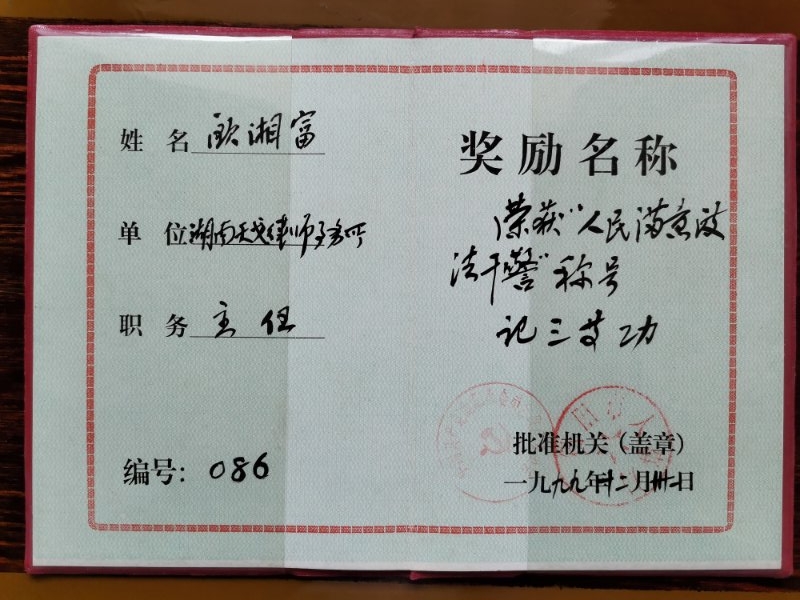 姓名 欧湘富
单位 湖南天戈律师事务所
职务 主任
编号：086
奖励名称
荣获“人民满意政
法干警”称号
记三等功
批准机关（盖章）
一九九九年十二月卅一日